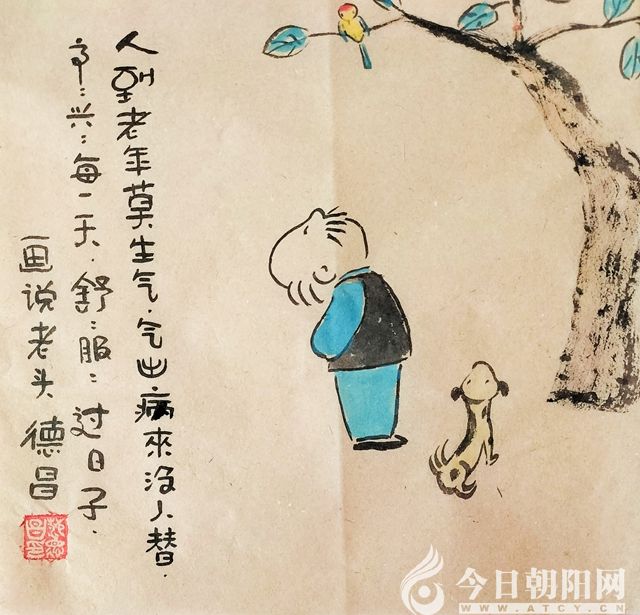 人到老年莫生气.气出病来没人替.
高:兴:每一天.舒:服:过日子.
画说老头 德昌
今日朝阳网
WWW.ATCY.CN